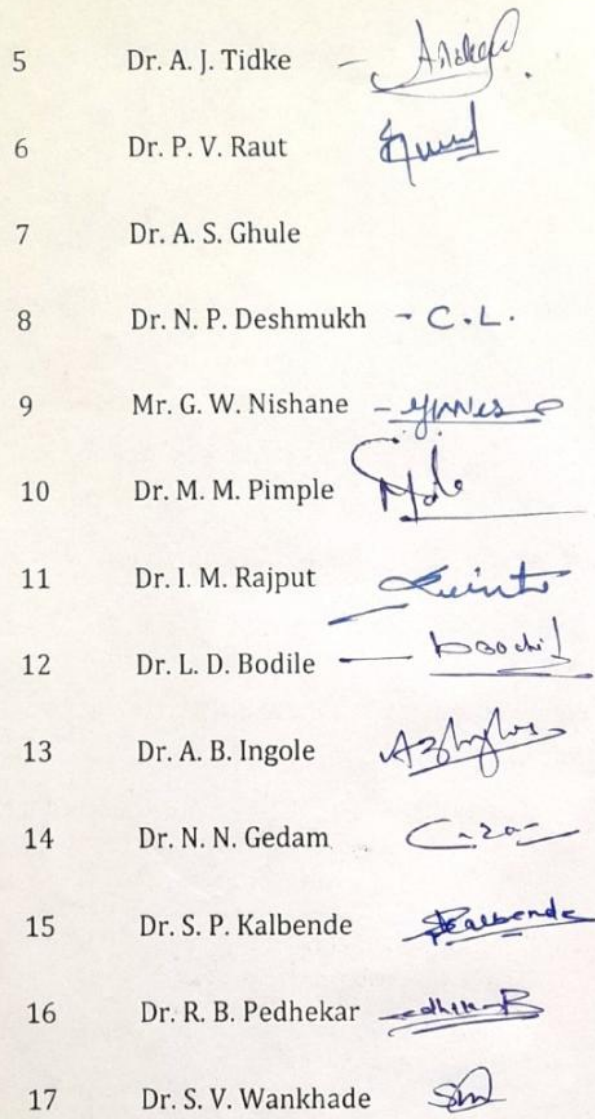 5 Dr. A. J. Tidke -
6 Dr. P. V. Raut
7 Dr. A. S. Ghule
8 Dr. N. P. Deshmukh - C.L.
9 Mr. G. W. Nishane -
10 Dr. M. M. Pimple
11 Dr. I. M. Rajput
12 Dr. L. D. Bodile -
13 Dr. A. B. Ingole
14 Dr. N. N. Gedam
15 Dr. S. P. Kalbende SKalbende
16 Dr. R. B. Pedhekar
17 Dr. S. V. Wankhade